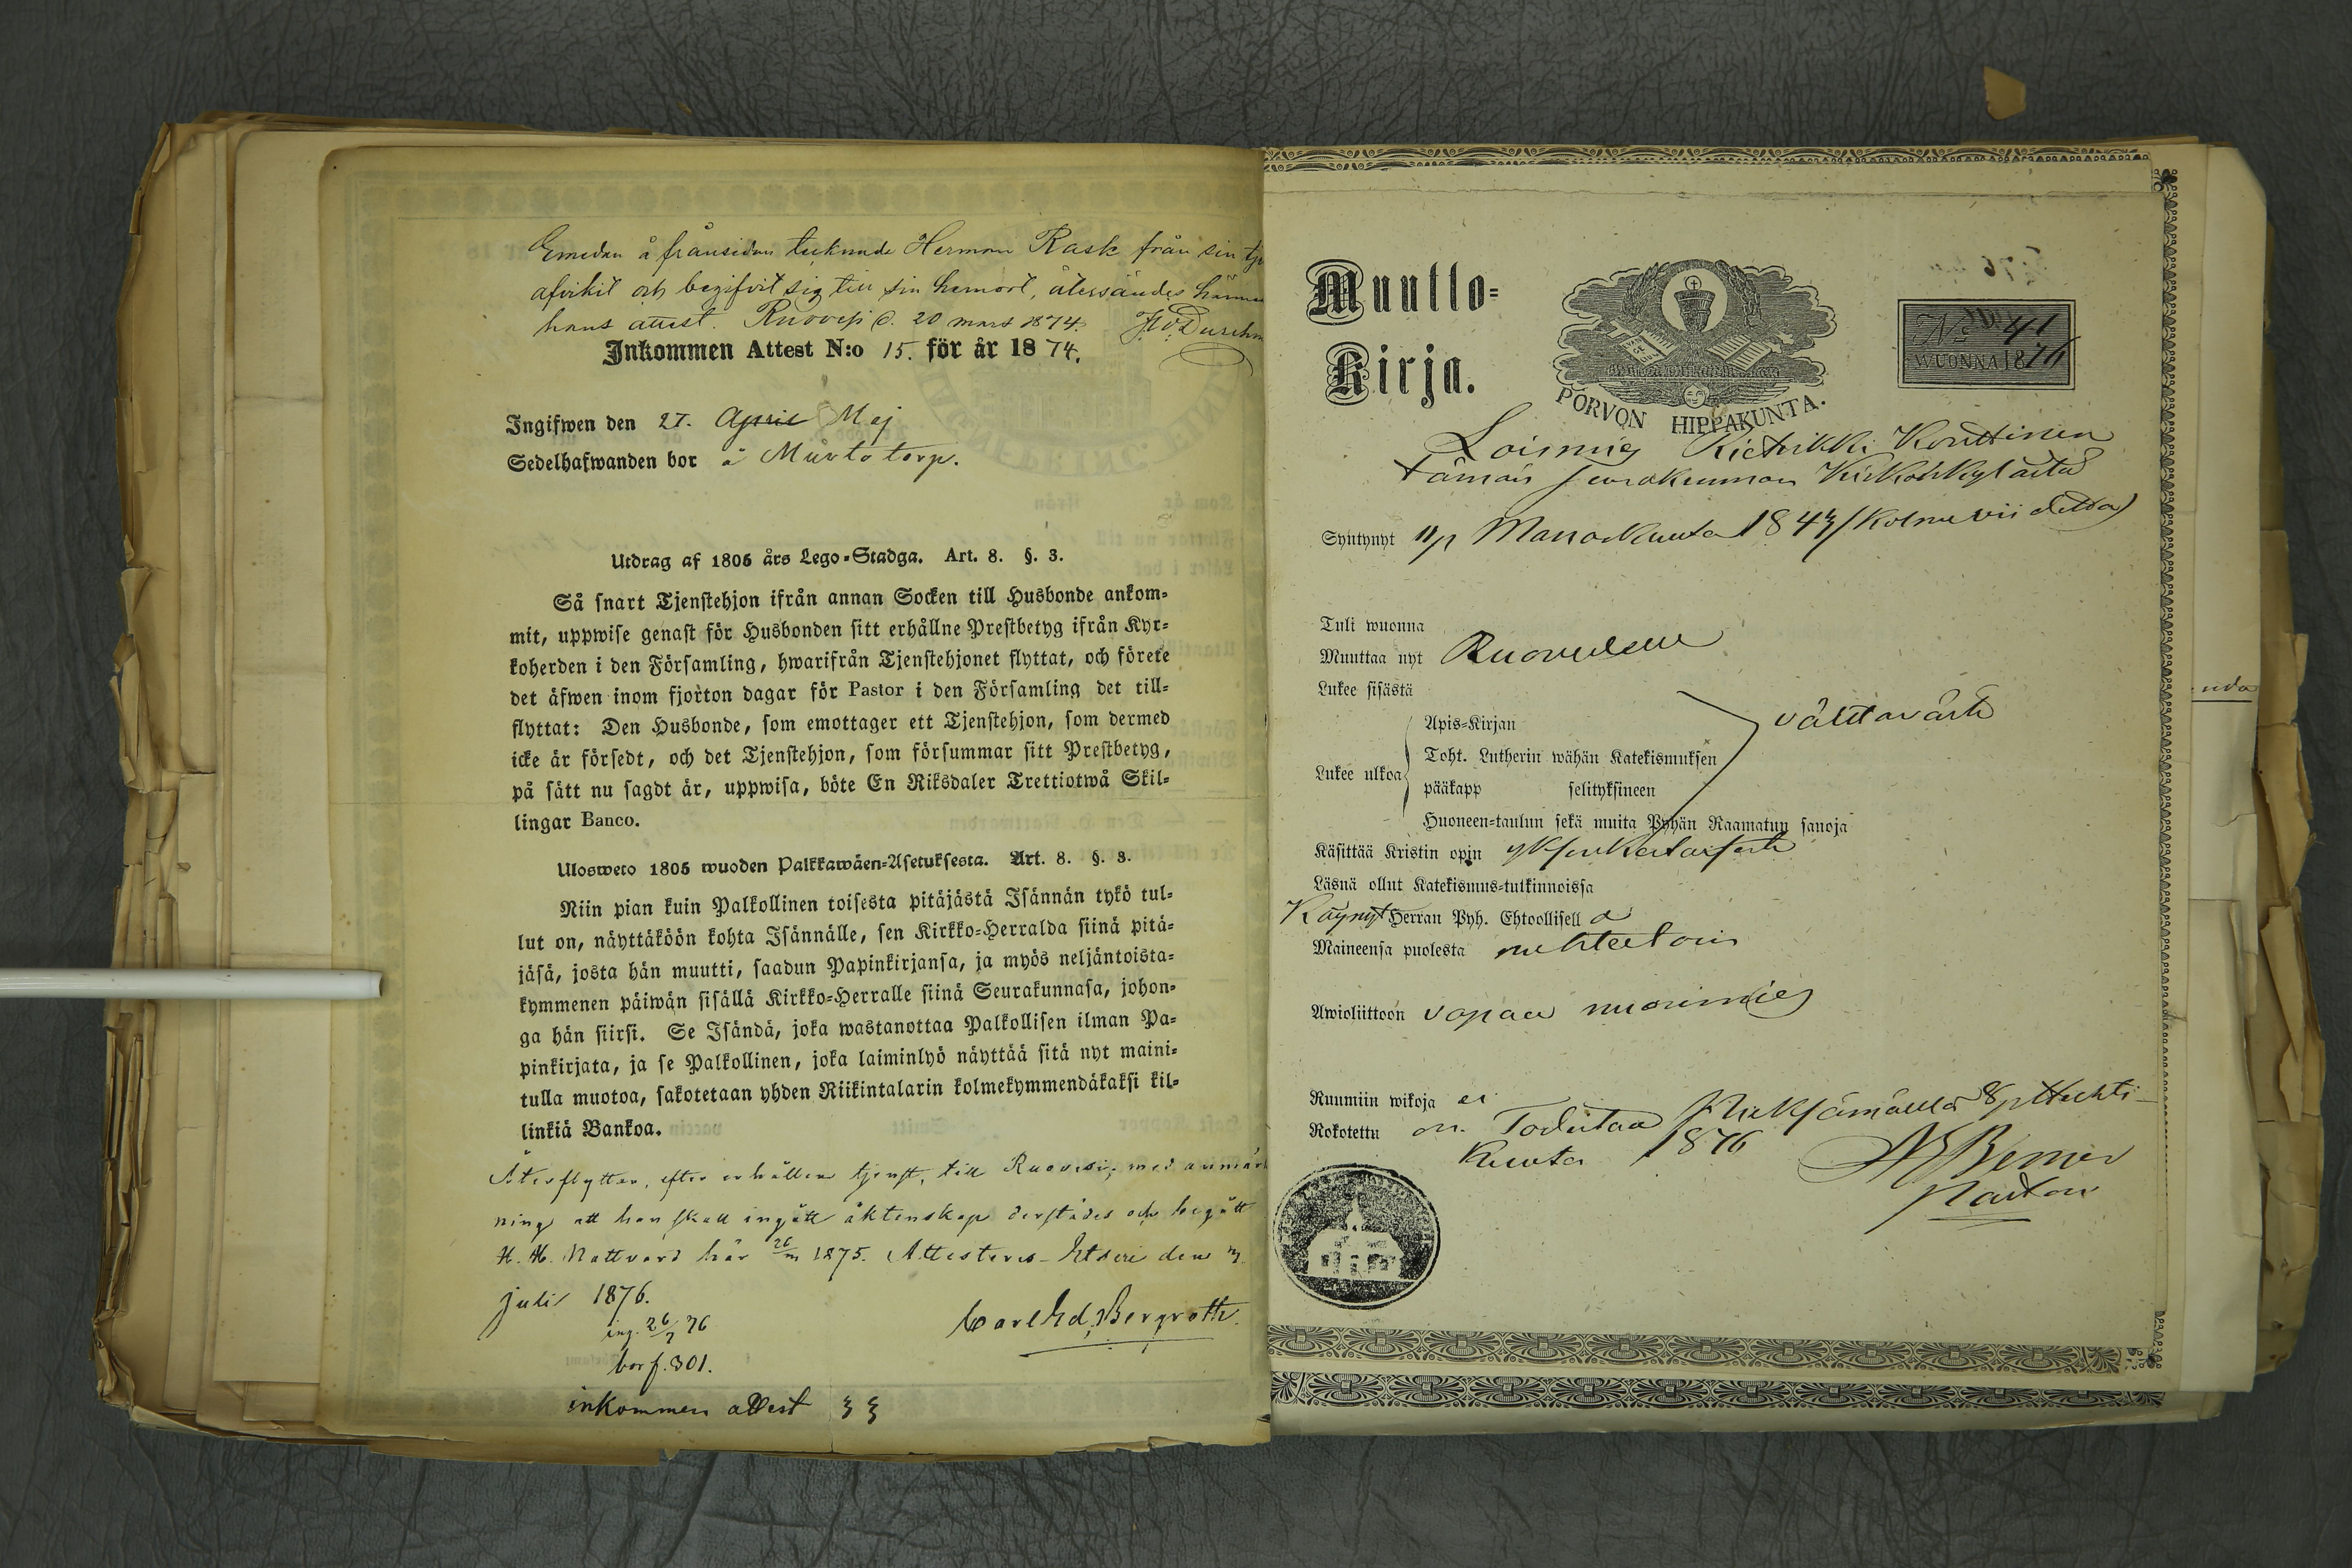 Emedan å frånsidan tecknade Herman Rask från sin
afvikit och begifvit sig till sin hemort, återsändes
hans attest. Ruovesi d. 20 mars 1874.
Inkommen Attest N:o 15. för år 1874.
Ingifwen den 27. April Maj
Sedelhafwanden bor å torp.
Utdrag af 1805 års Lego-Stadga. Art. 8. §. 3.
Så snart Tjenstehjon ifrån annan Socken till Husbonde ankom-
mit, uppwise genast för Husbonden sitt erhållne Prestbetyg ifrån Kyr-
koherden i den Församling, hwarifrån Tjenstehjonet flyttat, och förete
det äfwen inom fjorton dagar för Pastor i den Församling det till-
flyttat: Den Husbonde, som emottager ett Tjenstehjon, som dermed
icke är försedt, och det Tjenstehjon, som försummar sitt Prestbetyg,
på sätt nu sagdt är, uppwisa, böte En Riksdaler Trettiotwå Skil-
lingar Banco.
Ulosweto 1805 wuoden Palkkawäen-Asetuksesta. Art. 8. §. 3.
Niin pian kuin Palkollinen toisesta pitäjästä Isännän tykö tul-
lut on, näyttäköön kohta Isännälle, sen Kirkko-Herralda siinä pitä-
jäsä, josta hän muutti, saadun Papinkirjansa, ja myös neljäntoista-
kymmenen päiwän sisällä Kirkko-Herralle siinä Seurakunnasa, johon-
ga hän siirsi. Se Isändä, joka wastanottaa Palkollisen ilman Pa-
pinkirjata, ja se Palkollinen, joka laiminlyö näyttää sitä nyt maini-
tulla muotoa, sakotetaan yhden Riikintalarin kolmekymmendäkaksi kil-
linkiä Bankoa.
Återflyttar, efter erhållen tjenst, till Ruovesi, med anmärk
ning att han skall ingått äktenskap derstädes och begått
H. H. Nattvard här 1875. Attesteras Etseri den
juli 1876.
Carl Ed. Bergroth.
ing. 26/7 76
bor f. 301.
inkommen attest
Muutto-
Kirja.
PORVON HIPPAKUNTA.
No 41
WUONNA 1876
Loismies Kinttinen
tämän seurakunnan Kirkonkylästä
Syntynyt 11/p Marraskuuta 1843 (kolmeviidettä)
Tuli wuonna
Muuttaa nyt Ruovedelle
Lukee sisästä
Lukee ulkoa
Apis-Kirjan
Toht. Lutherin wähän Katekismuksen
pääkapp selityksineen
Huoneen-taulun sekä muita Pyhän Raamatun sanoja
välttävästi
Käsittää Kristin opin yksinkertaisesti
Läsnä ollut Katekismus-tutkinnoissa
Käynyt Herran Pyh. Ehtoollisella
Maineensa puolesta nuhteetoin
Awioliittoon vapaa nuorimies
Ruumiin wikoja ei
Rokotettu on. Todistaa Pieksämäellä 8/p Huhti-
kuuta 1876
Pastori